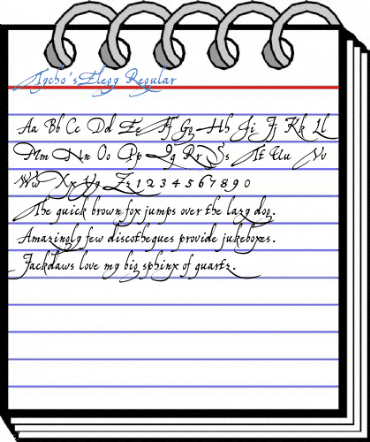 Tycho'sElegy Regular
Aa Bb Cc Dd Ee Ff Gg Hh Ii Jj Kk Ll
Mm Nn Oo Pp Qq Rr Ss Tt Uu Vv
Ww Xx Yy Zz 1 2 3 4 5 6 7 8 9 0
The quick brown fox jumps over the lazy dog.
Amazingly few discotheques provide jukeboxes.
Jackdaws love my big sphinx of quartz.